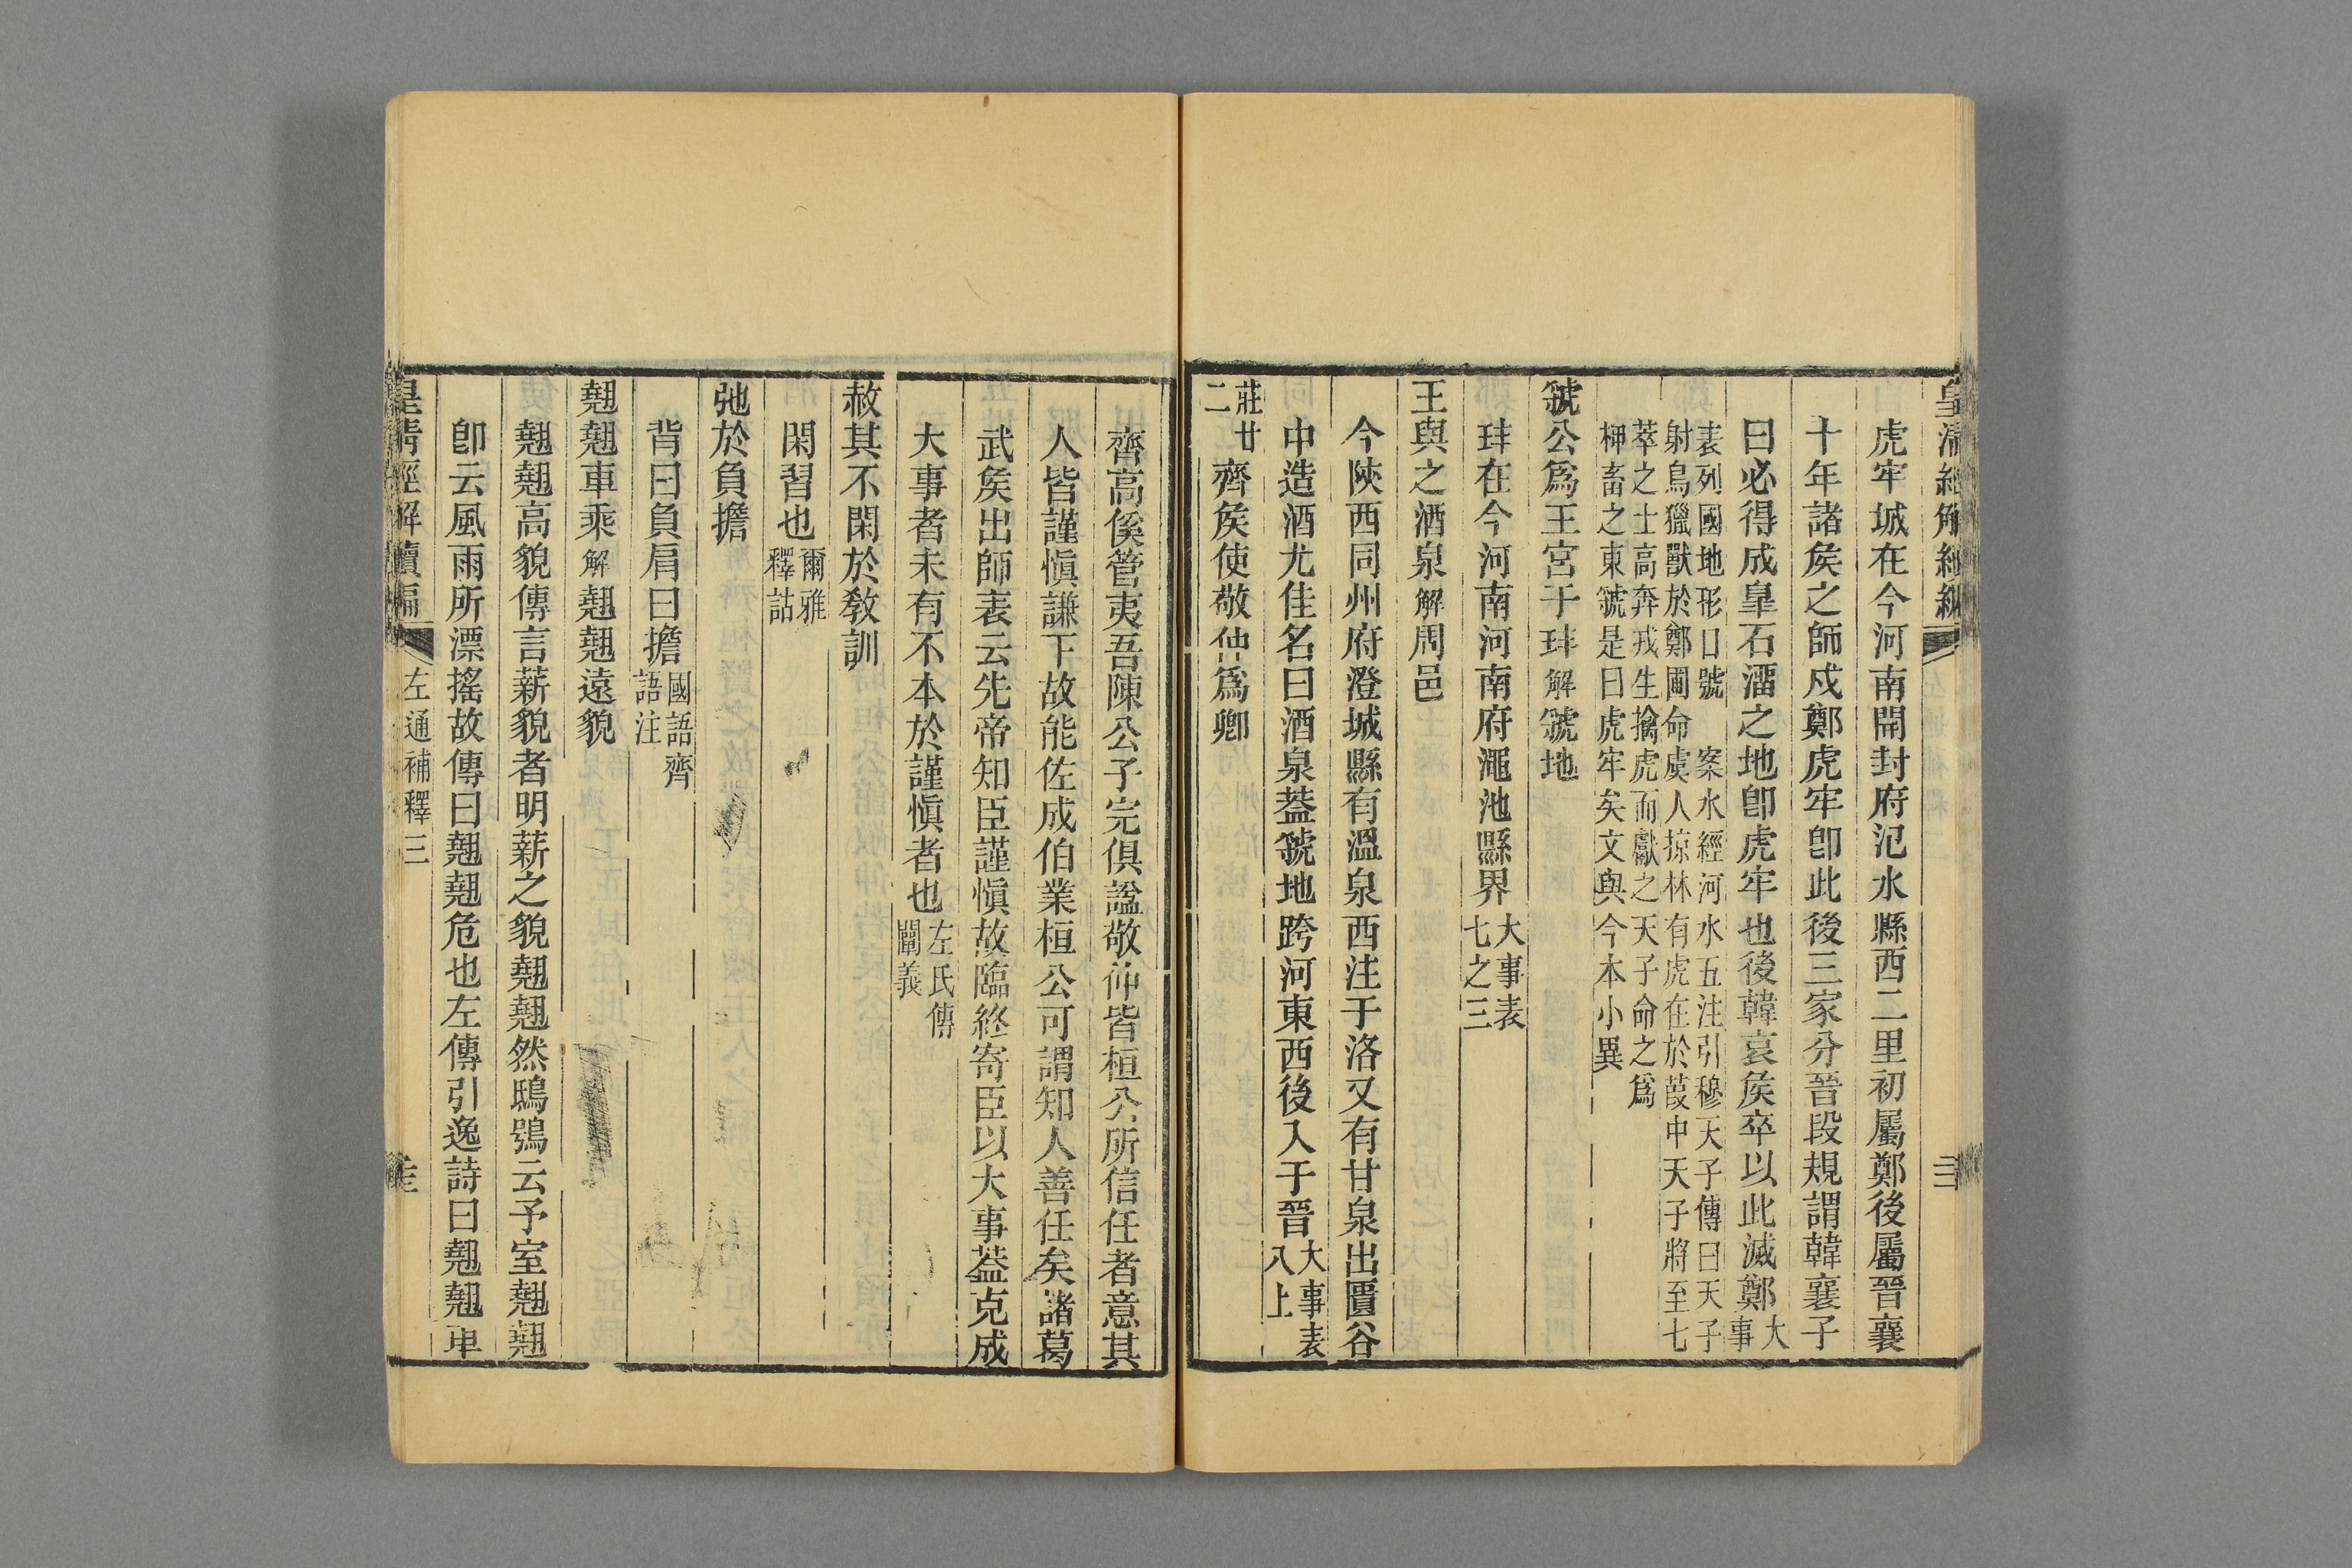 虎牢城在今河南開封府氾水縣西二里初屬鄭後屬晉襄
十年諸矦之師戍鄭虎牢卽此後三家分晉段規謂韓襄子
曰必得成臯石溜之地卽虎牢也後韓哀矦卒以此滅鄭大事
表列國地形口號　案水經河水五注引穆天子傳曰天子
射鳥獵獸於鄭圃命虞人掠林有虎在於葭中天子將至七
萃之士高奔戎生擒虎而獻之天子命之爲
柙畜之東虢是曰虎牢矣文與今本小異
虢公爲王宮于玤解虢地
玤在今河南河南府澠池縣界大事表七之三
王與之酒泉解周邑
今陝西同州府澄城縣有溫泉西注于洛又有甘泉出匱谷
中造酒尤佳名曰酒泉葢虢地跨河東西後入于晉大事表八上
莊廿二齊矦使敬仲爲卿
齊高傒管夷吾陳公子完俱謚敬仲皆桓公所信任者意其
人皆謹愼謙下故能佐成伯業桓公可謂知人善任矣諸葛
武矦出師表云先帝知臣謹愼故臨終寄臣以大事葢克成
大事者未有不本於謹愼者也左氏傳闡義
赦其不閑於敎訓
閑習也爾雅釋詁
弛於負擔
背曰負肩曰擔國語齊語注
翹翹車乘解翹翹遠貌
翹翹高貌傳言薪貌者明薪之貌翹翹然鴟鴞云予室翹翹
卽云風雨所漂搖故傳曰翹翹危也左傳引逸詩曰翹翹車
皇清經解續編
左通補釋三